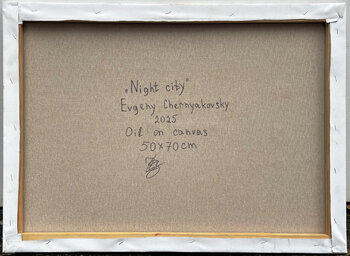 „Night city"
Evgeny Chernyakovsky
2025
Oil on canvas
50x70cm